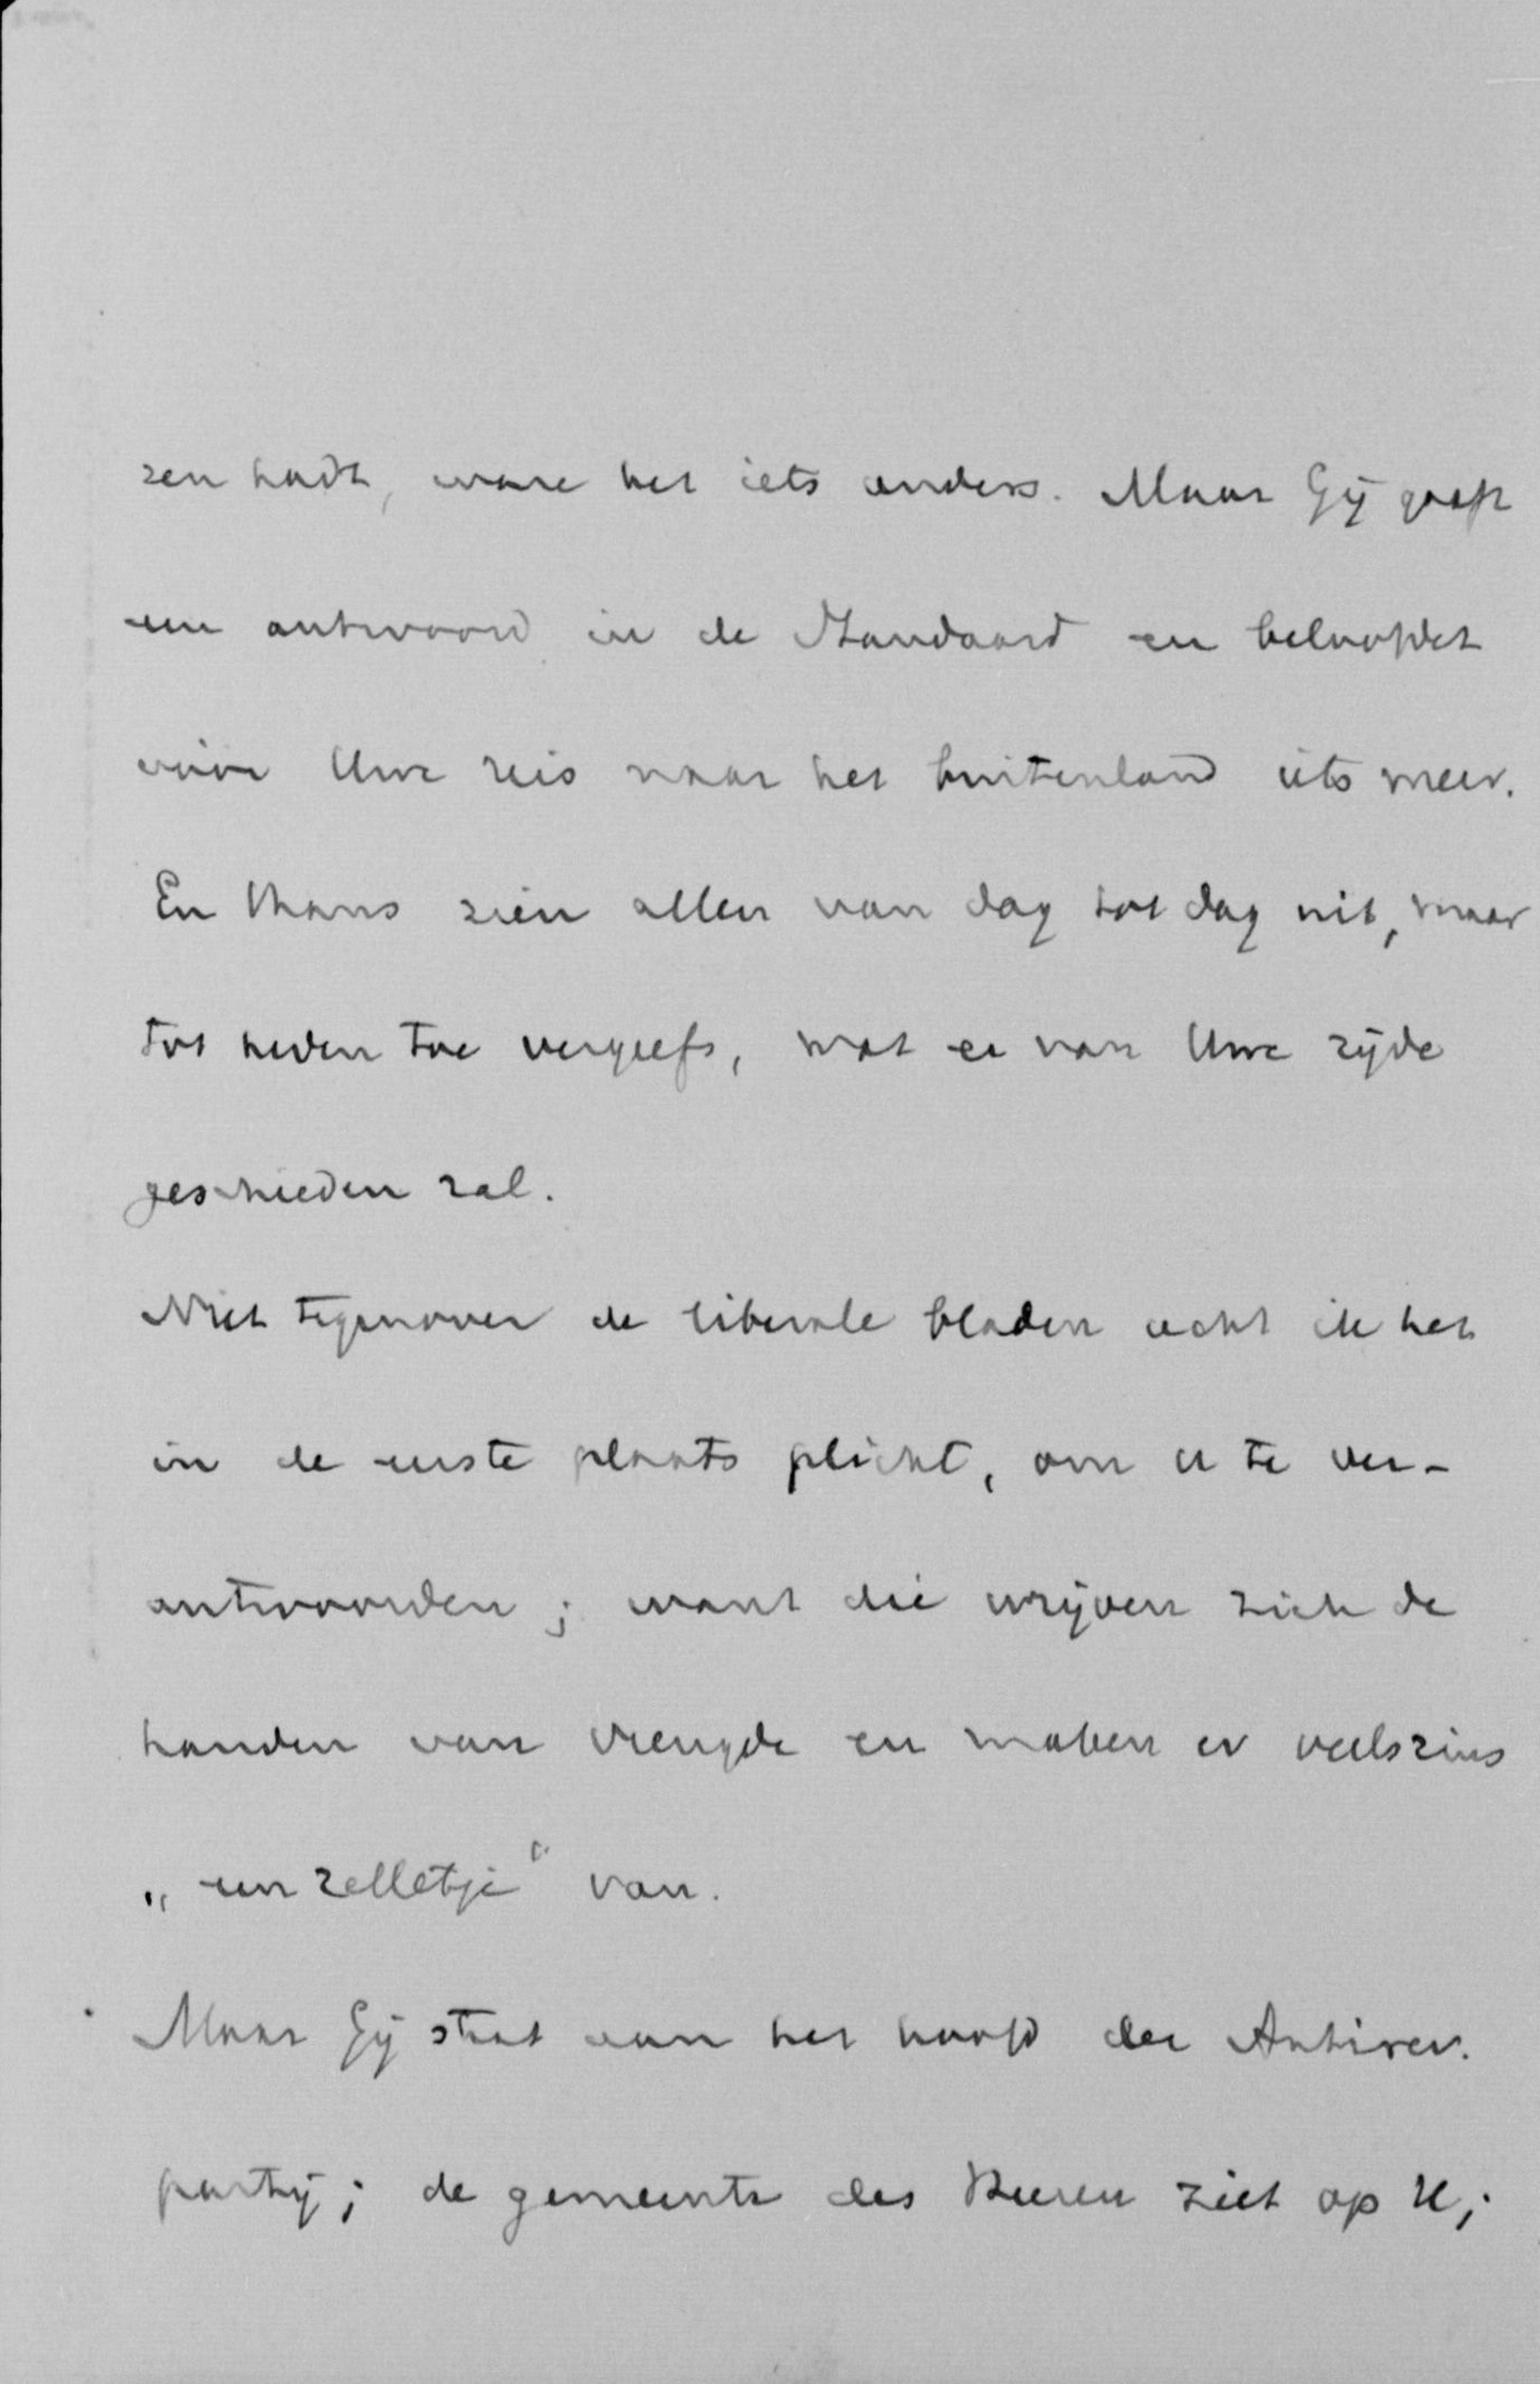 zen hadt, ware het iets anders. Maar Gij gaaft
een antwoord in de Standaard en beloofdet
vóór Uwe reis naar het buitenland iets meer.
En thans zien allen van dag tot dag uit, maar
tot heden toe vergeefs, wat er van Uwe zijde
geschieden zal.
Niet tegenover de liberale bladen acht ik het
in de eerste plaats plicht, om U te ver-
antwoorden; want die wrijven zich de
handen van vreugde en maken er veelszins
„een relletje" van.
Maar Gij staat aan het hoofd der Antirev.
partij; de gemeente des Heeren ziet op U;